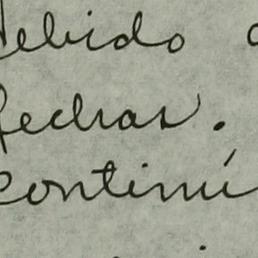 debido
fechas.
continú